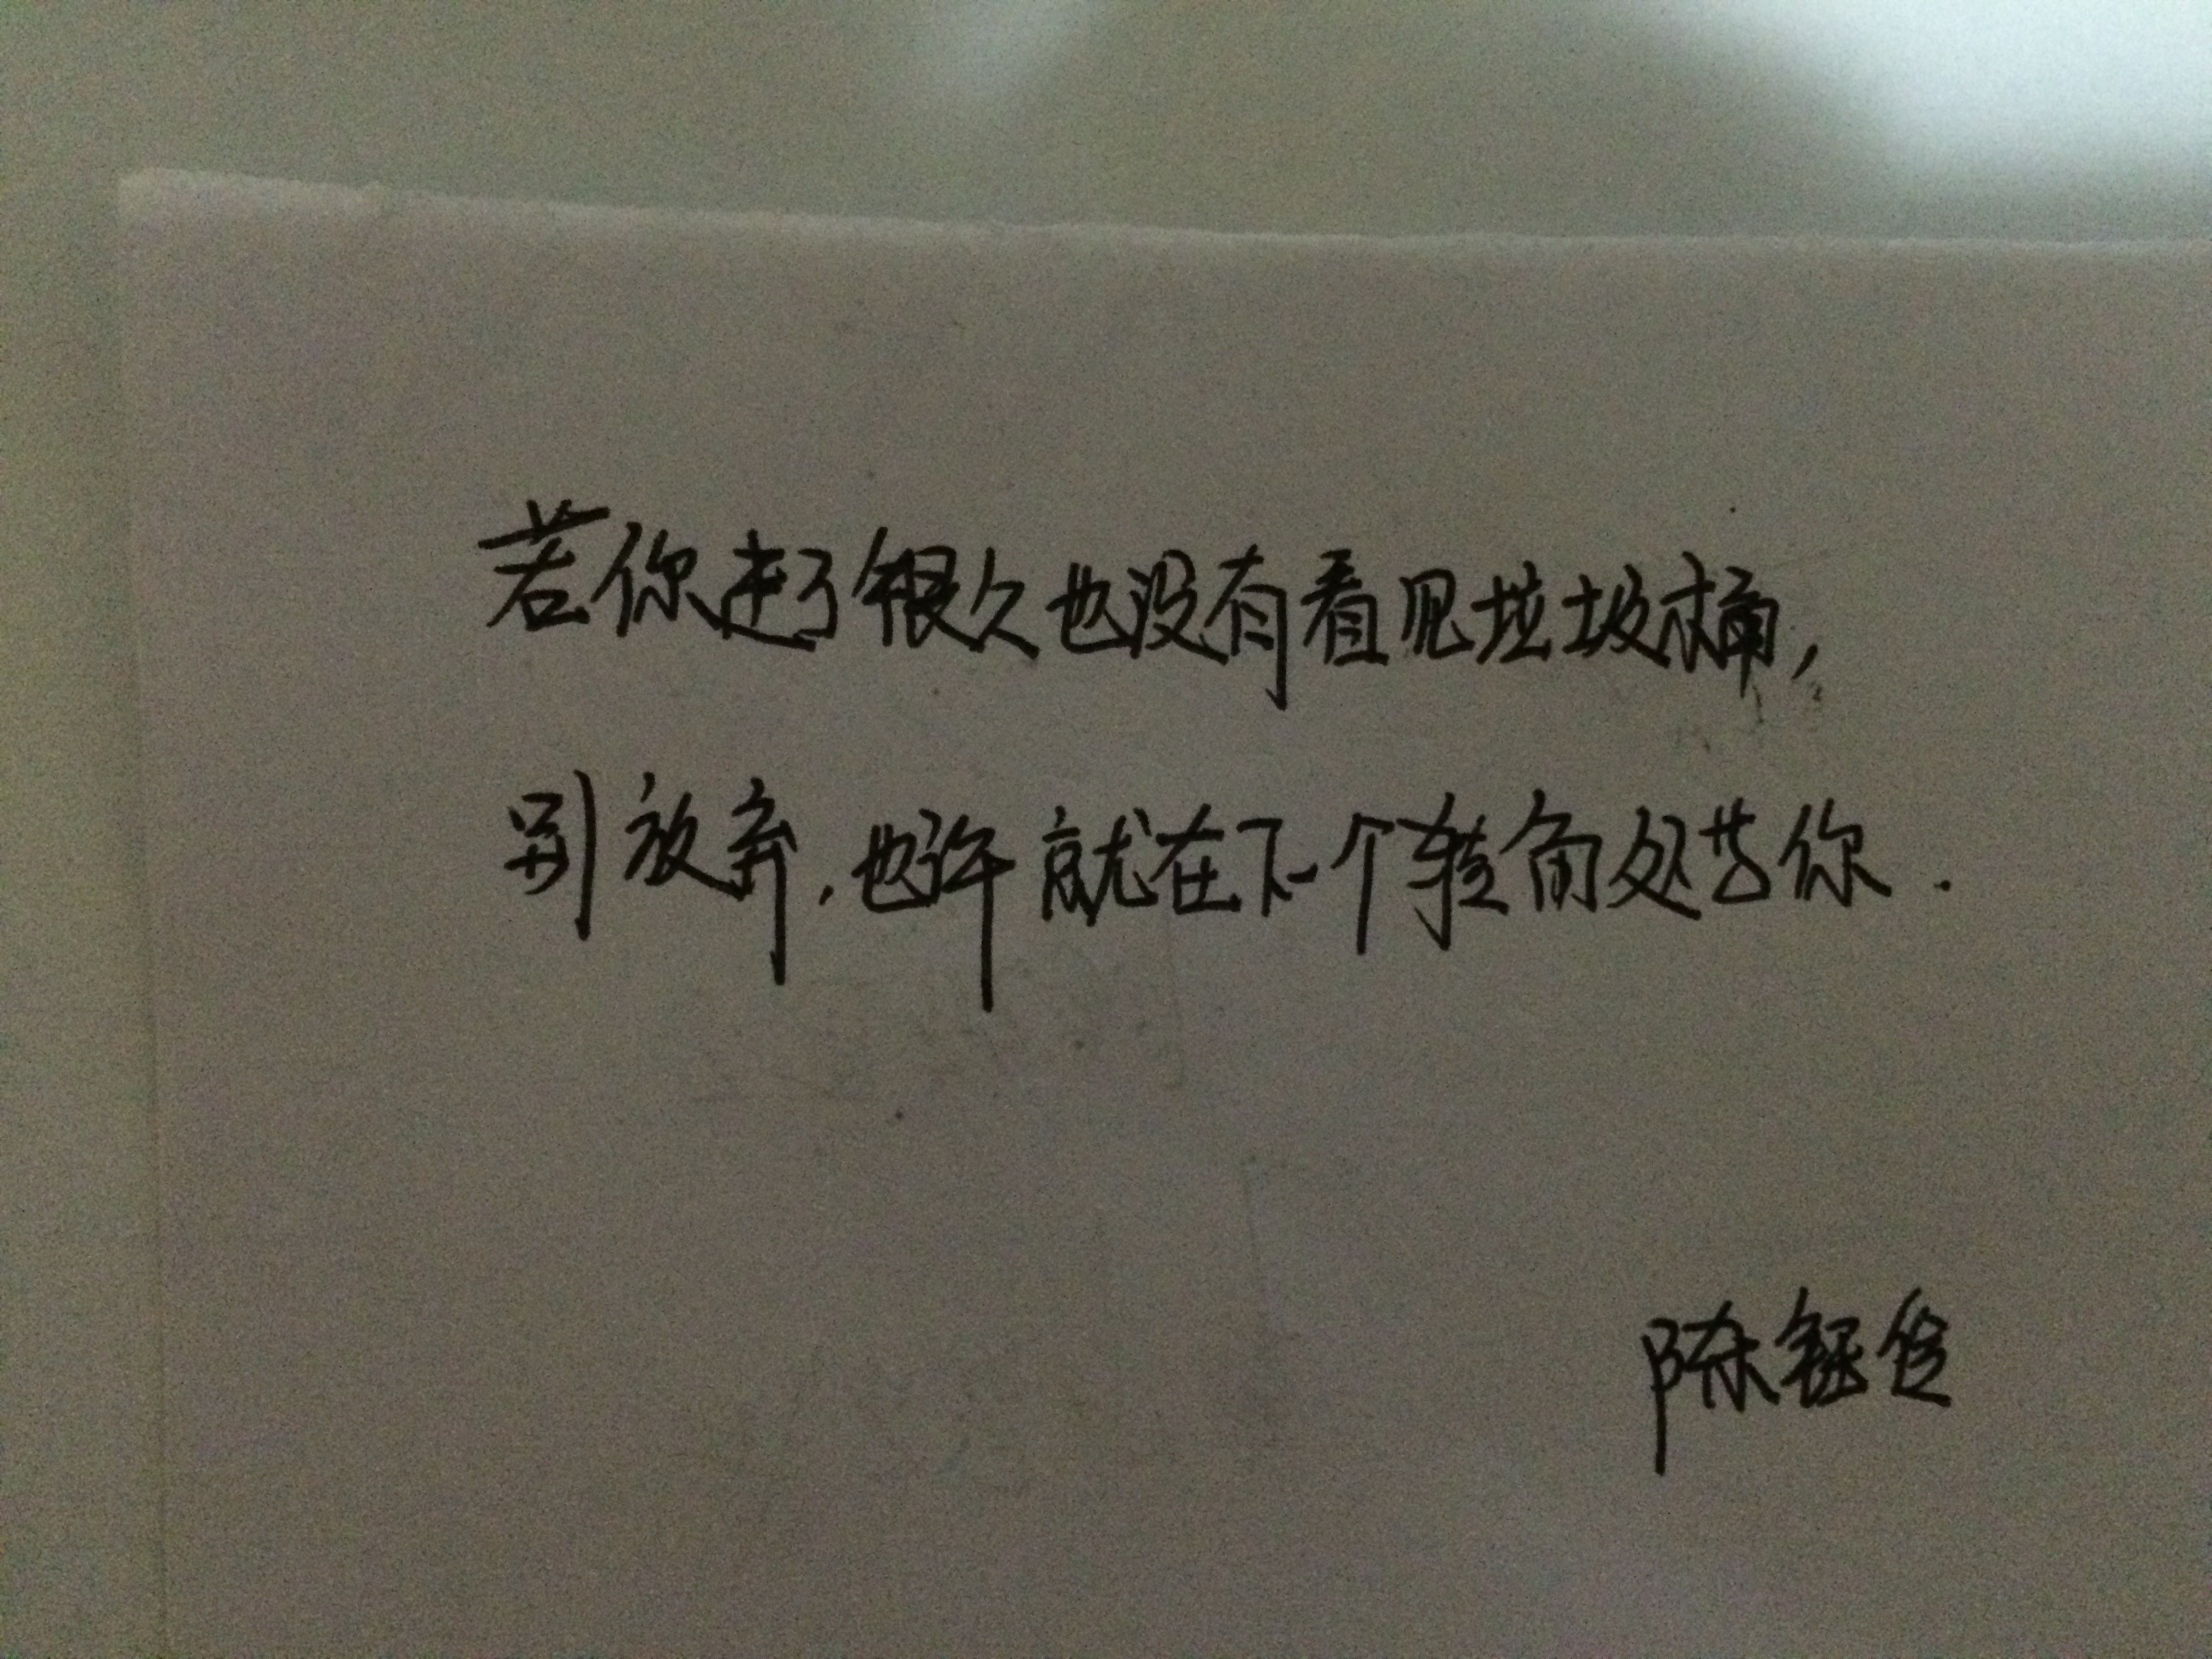 若你走了很久也没有看见垃圾桶，
别放弃，也许就在下一个转角处等你.
陈